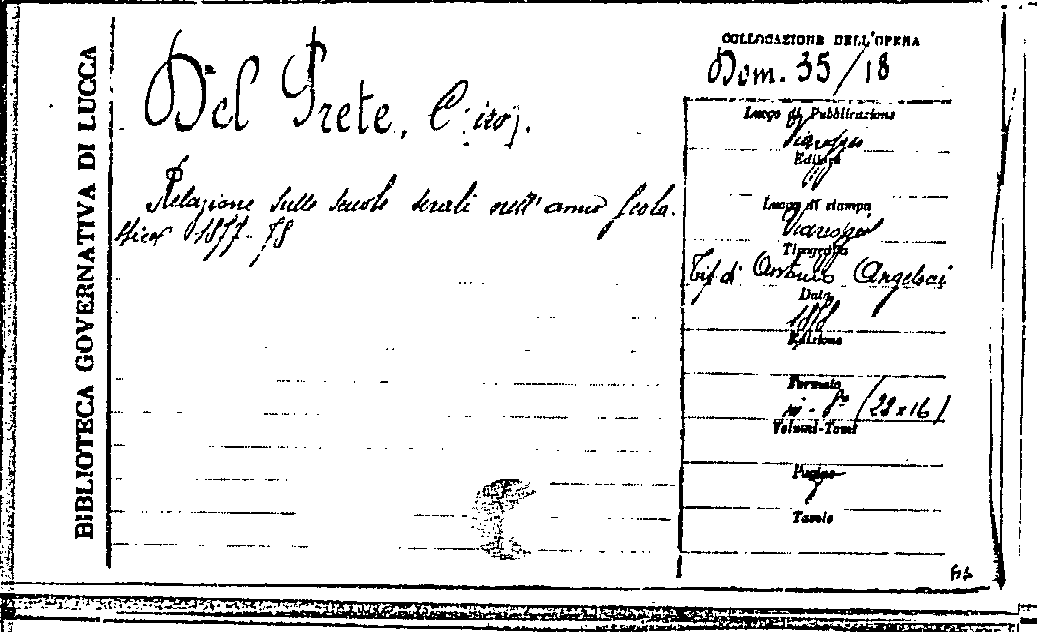 BIBLIOTECA GOVERNATIVA DI LUCCA
Del Prete, C[iro].
Relazione sulle scuole serali nell'anno scola-
stico 1877-78
COLLOCAZIONE DELL'OPERA
Dom. 35/18
Luogo di Pubblicazione
Viareggio
Editore
Luogo di stampa
Viareggio
Tipografia
Tip di Antonio Angeloni
Data
1878
Edizione
Formato
in-8º (22x16)
Volumi-Tomi
Pagine
7
Tavole